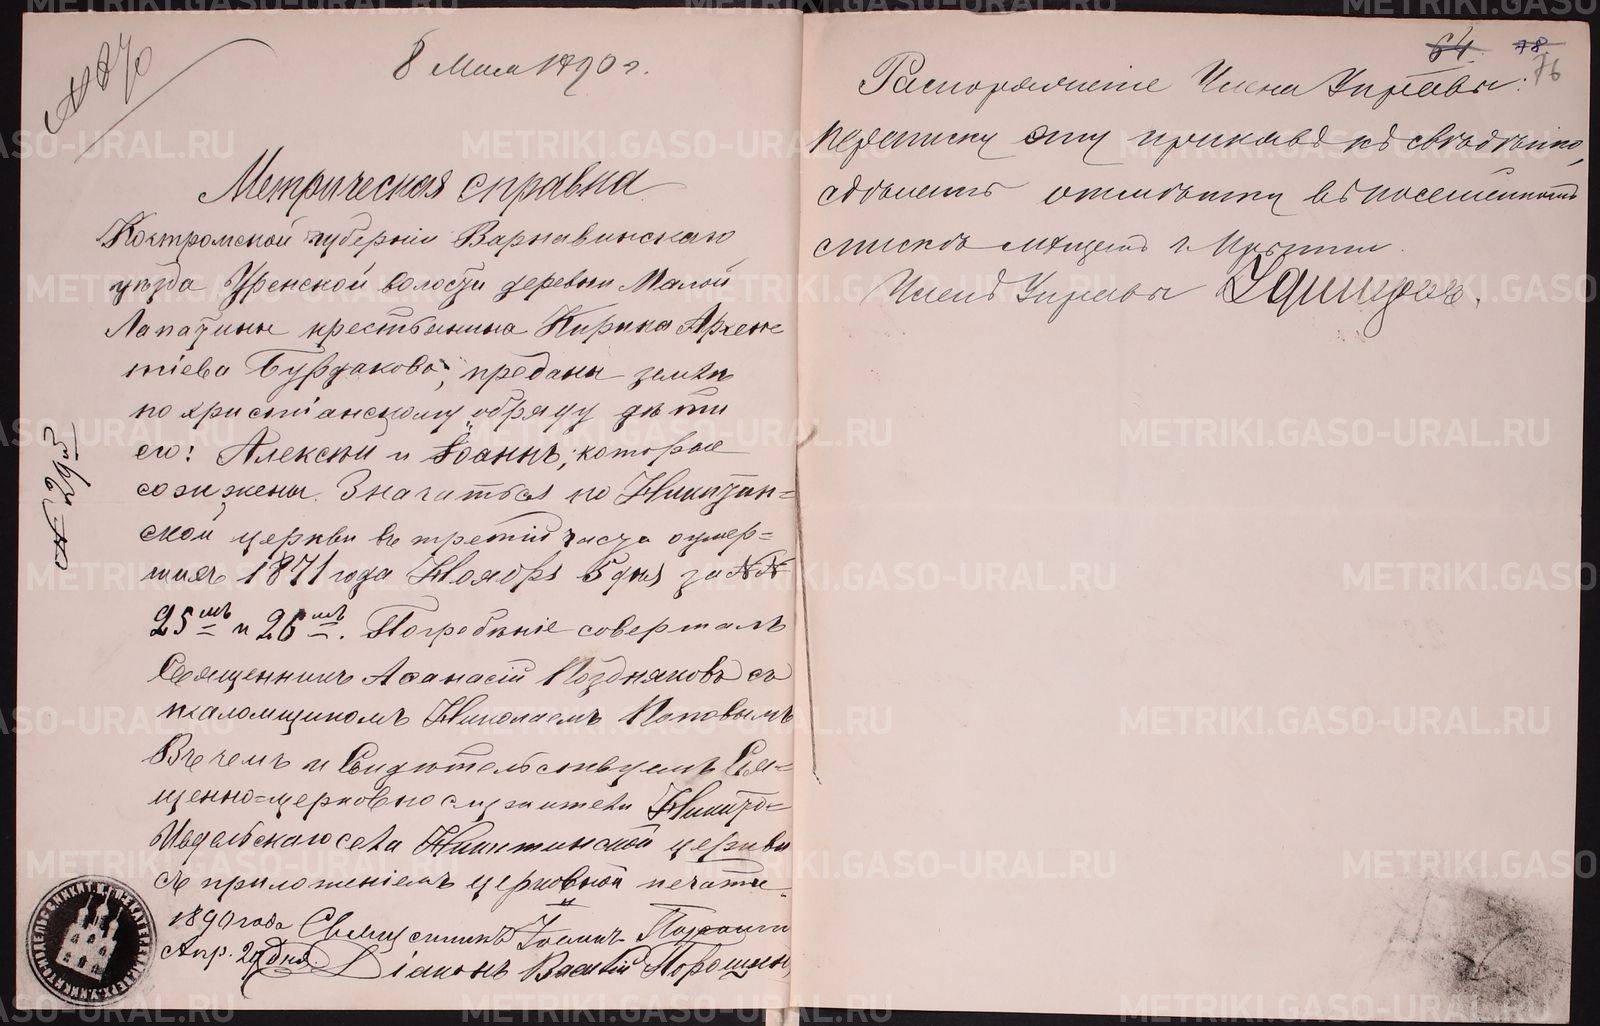 № 870
8 Мая 1890 г.
Метрическая справка
Костромской губерніи Варнавинскаго
уѣзда Уренской волости деревни Малой
Лапатины крестьянина Кирика Архепе
тіева Бурдакова, преданы землѣ
по христіанскому обряду дѣти
его: Алексѣй и Іоаннъ, которые
сожжены. Значатся по Никитин=
ской церкви въ третій части о умер=
шихъ 1871 года Ноября 5 дня за №№
25мъ и 26мъ. Погребеніе совершалъ
Священникъ Аѳанасій Поздняковъ съ
псаломщикомъ Николаемъ Поповымъ
Въ чемъ и Свидѣтельствуемъ Свя=
щенно=церковно служители Никито=
Ивдельскаго села Никитинской церкви
съ приложеніемъ церковной печати.
1890 года Священникъ Іоаннъ
Апр. 24 дня Діаконъ Василій Порошин
№ 293
64 78
76
Распоряженіе Члена Управы:
переписку эту приказъ къ свѣдѣнію,
сдѣлать отмѣтку въ посемейномъ
спискѣ мѣщанъ г.
Членъ Управы
METRIKI.GASO-URAL.RU